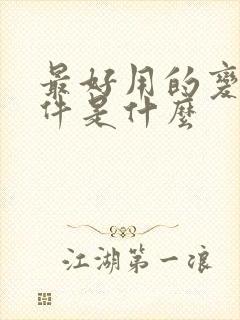 最好用的變
件是什麼
江湖第一浪